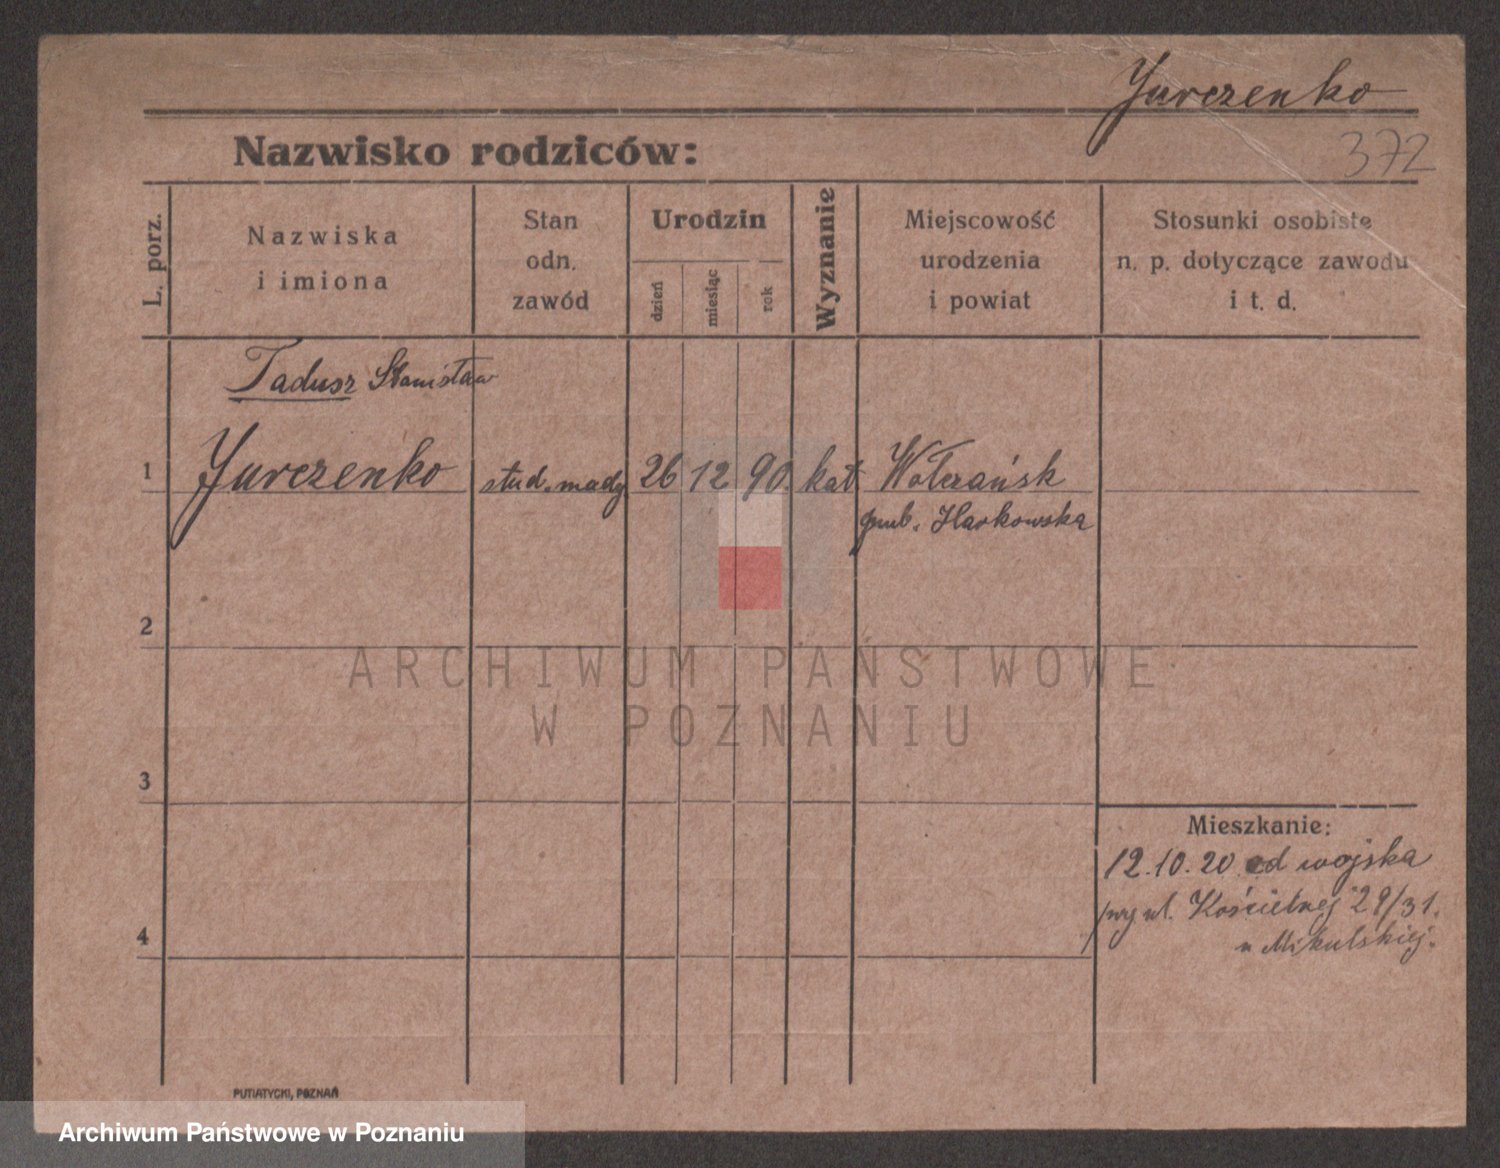 Jurczenko
372
Nazwisko rodziców:
L. porz.
Nazwiska
i imiona
Stan
odn.
zawód
Urodzin
dzień
miesiąc
rok
Wyznanie
Miejscowość
urodzenia
i powiat
Stosunki osobiste
n. p. dotyczące zawodu
i t. d.
Tadusz Stanisław
1 Jurczenko stud. 26 12 90. kat Wołczańsk
gub. Harkowska
2
3
4
Mieszkanie:
12.10.20 od wojska
przy ul. Kościelnej 29/31.
u Mikulskiej.
PUTIATYCKI, POZNAŃ
ARCHIWUM PAŃSTWOWE
W POZNANIU
Archiwum Państwowe w Poznaniu